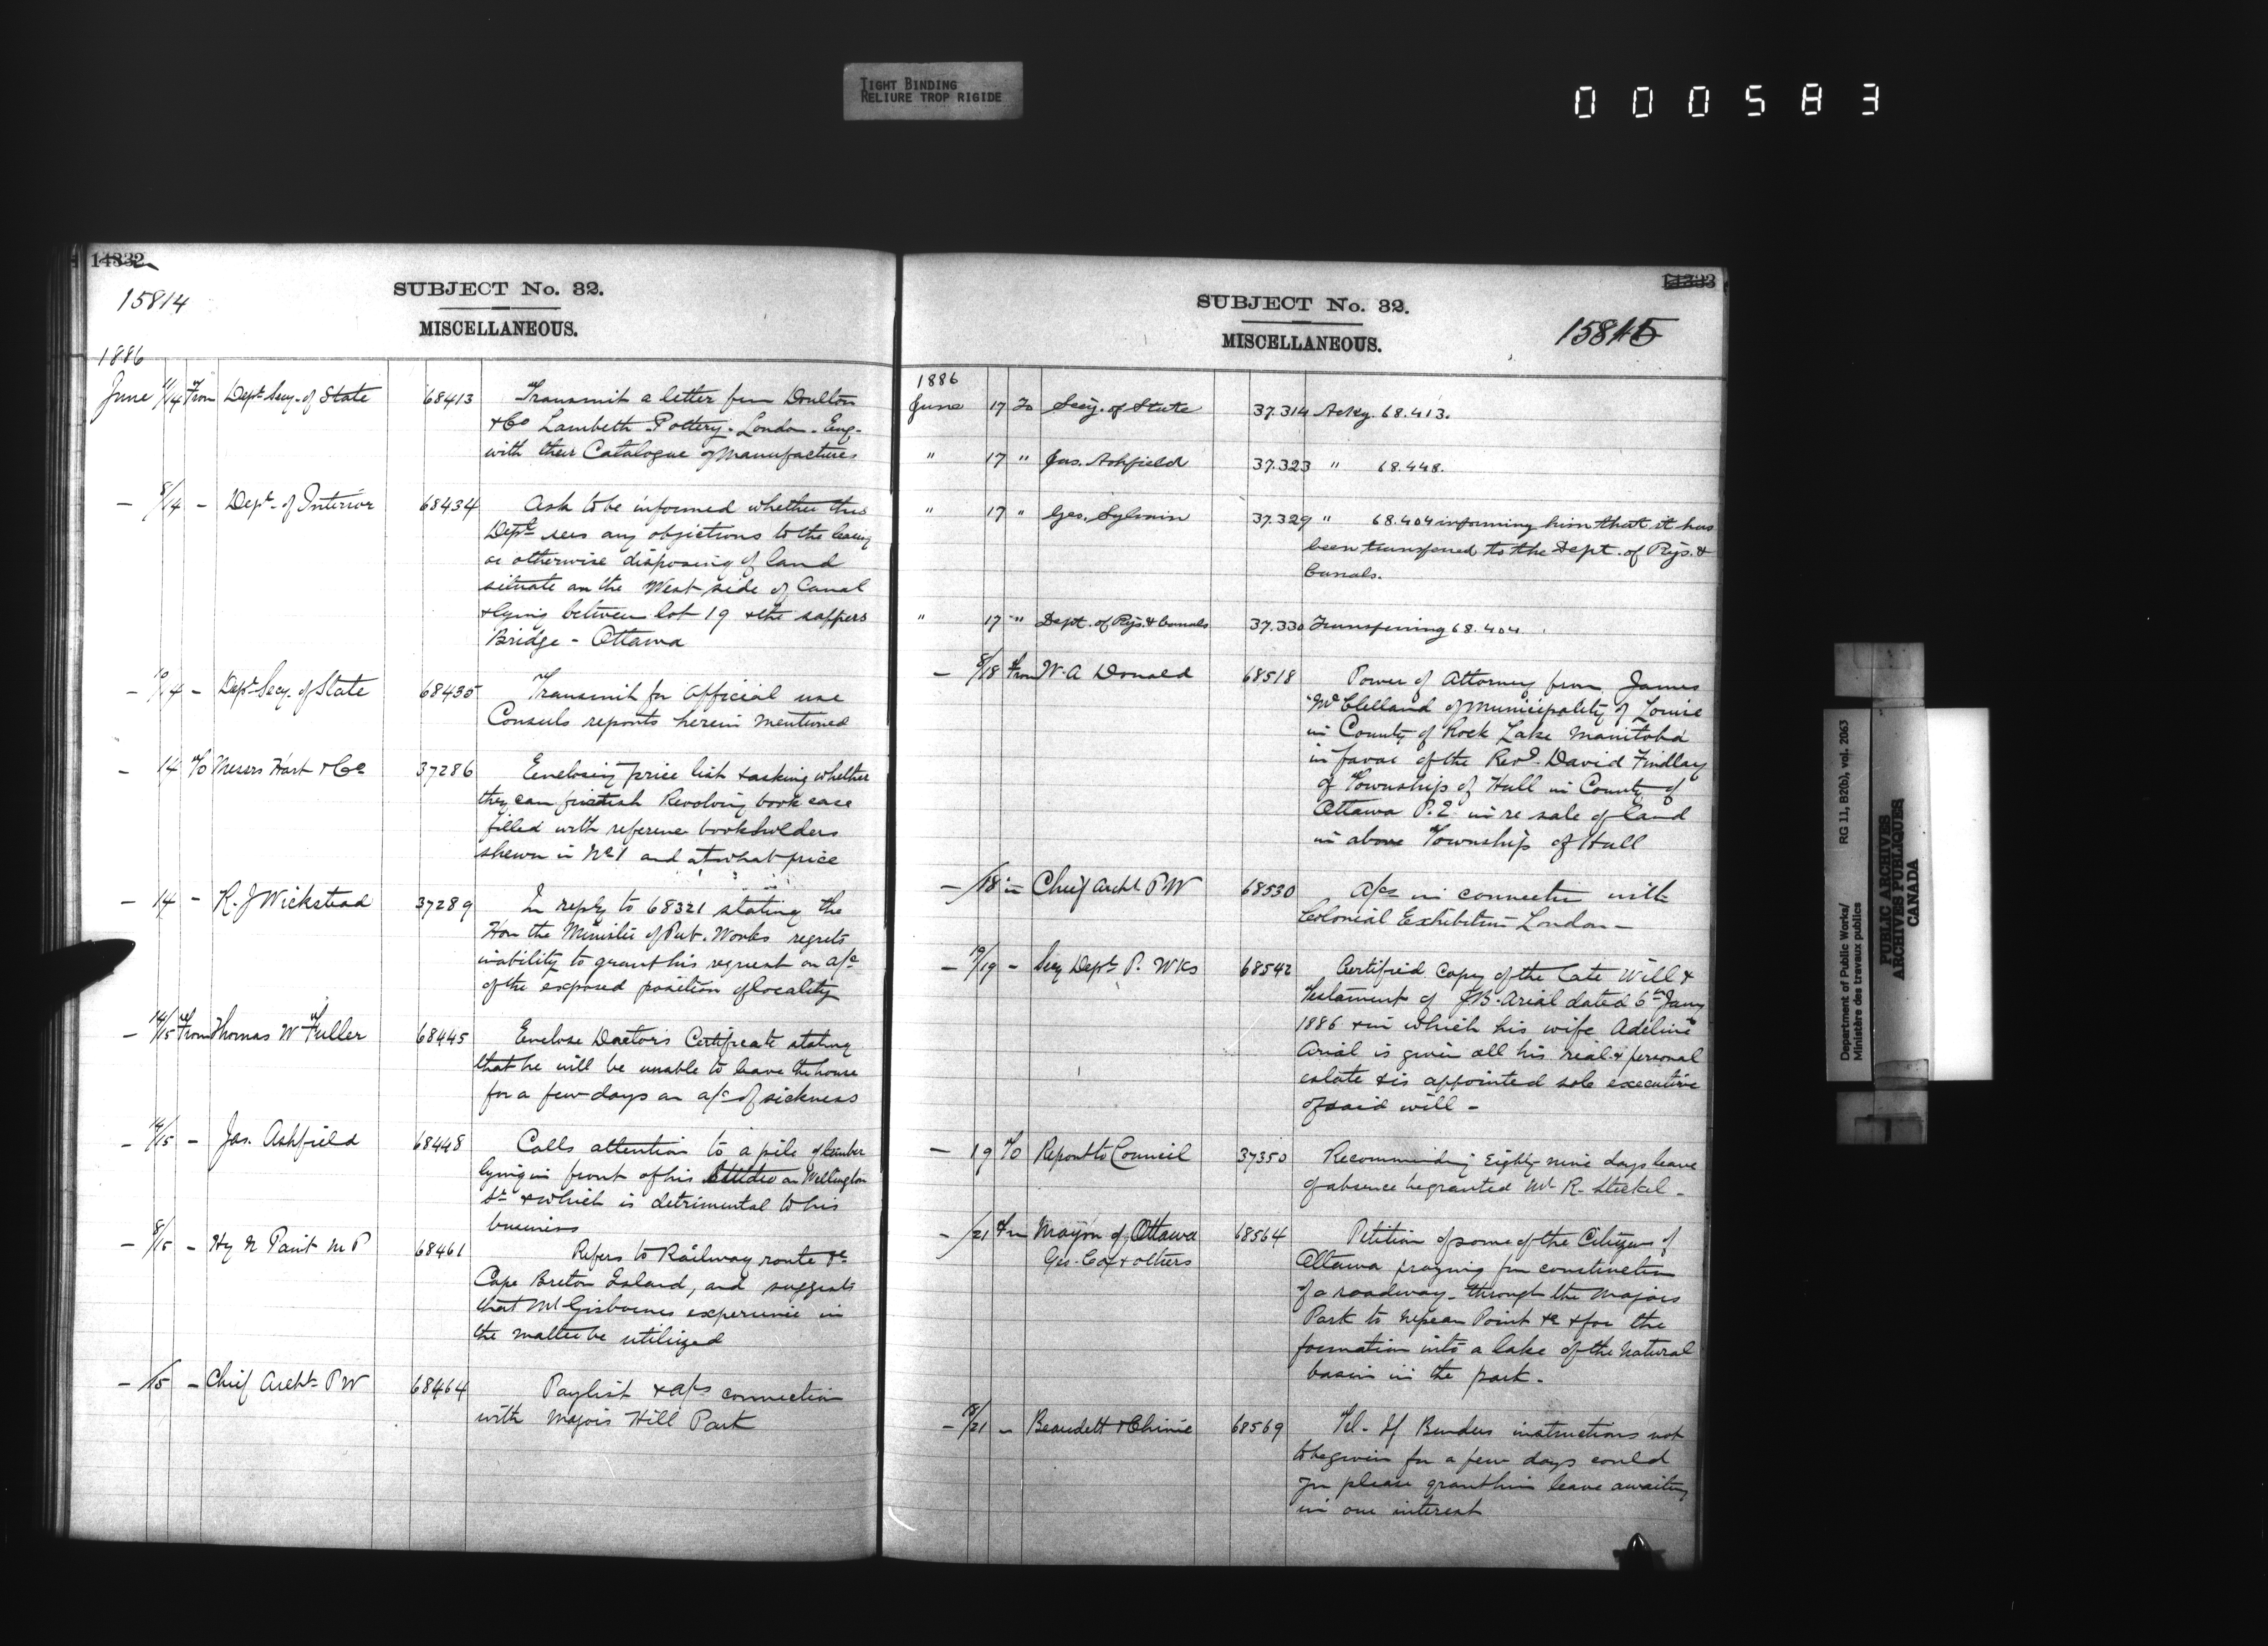 TIGHT BINDING
RELIURE TROP RIGIDE
000583
14332
15814
SUBJECT No. 32.
MISCELLANEOUS.
1886
June 11/14 From Dept Secy. of State 68413 Transmit a letter from Doulton
& Co Lambeth Pottery. London. Eng.
with their Catalogue of Manufactures
— 8/14 — Dept. of Interior 68434 Ask to be informed whether this
Dept. sees any objections to the leasing
or otherwise disposing of land
situate on the West side of Canal
& lying between lot 19 & the sappers
Bridge - Ottawa
— 10/14 — Dept Secy. of State 68435 Transmit for official use
Consuls reports herein mentioned
— 14 To Messrs Hart & Co 37286 Enclosing price list & asking whether
they can furnish Revolving book case
filled with reference bookholders
shewn in No 1 and at what price
— 14 — R. J Wickstead 37289 In reply to 68321 stating the
Hon the Minister of Pub. Works regrets
inability to grant his request on a/c
of the exposed position of locality
— 14/15 From Thomas W Fuller 68445 Enclose Doctors Certificate stating
that he will be unable to leave the house
for a few days on a/c of sickness
— 14/15 — Jas. Ashfield 68448 Calls attention to a pile of timber
lying in front of his on Wellington
St. & which is detrimental to his
business
— 8/15 — Hy N Paint M P 68461 Refers to Railway route &c
Cape Breton Island, and suggests
that Mr Gisbornes experience in
the matter be utilized
— /15 — Chief Archt. P W 68464 Paylist & a/cs connection
with Majors Hill Park
14333
SUBJECT No. 32.
MISCELLANEOUS.
15815
1886
June 17 To Secy. of State 37.314 Ackg. 68.413.
" 17 " Jas. Ashfield 37.323 " 68.448.
" 17 " Geo. Sylvain 37.329 " 68.404 informing him that it has
been transferred to the Dept. of Rys. &
Canals.
" 17 " Dept. of Rys. & Canals 37.330 Transferring 68.404.
— 8/18 From W. A Donald 68518 Power of Attorney from James
McClelland of Municipality of Louise
in County of Rock Lake Manitoba
in favor of the Revd. David Findlay
of Township of Hull in County of
Ottawa P.Q. in re sale of land
in above Township of Hull
— /18 — Chief Archt P W 68530 A/cs in connection with
Colonial Exhibition London —
— 19/19 — Secy Dept P. Wks 68542 Certified Copy of the Late Will &
Testament of J.B. Arial dated 6th Jany
1886 & in which his wife Adeline
Arial is given all his real & personal
estate & is appointed sole executive
of said will —
— 19 To Report to Council 37350 Recommending Eighty nine days leave
of absence be granted Mr R. Steckel —
— /21 Frm Mayor of Ottawa 68564 Petition of some of the Citizens of
Geo. Cox & others Ottawa praying for construction
of a roadway through the Majors
Park to Nepean Point &c & for the
formation into a lake of the natural
basin in the park.
— 18/21 — Beaudett & Chinic 68569 Tel. If Benders instructions not
to be given for a few days could
you please grant him leave awaiting
in our interest
Department of Public Works/ RG 11, B20(b), vol. 2063
Ministère des travaux publics
PUBLIC ARCHIVES
ARCHIVES PUBLIQUES
CANADA